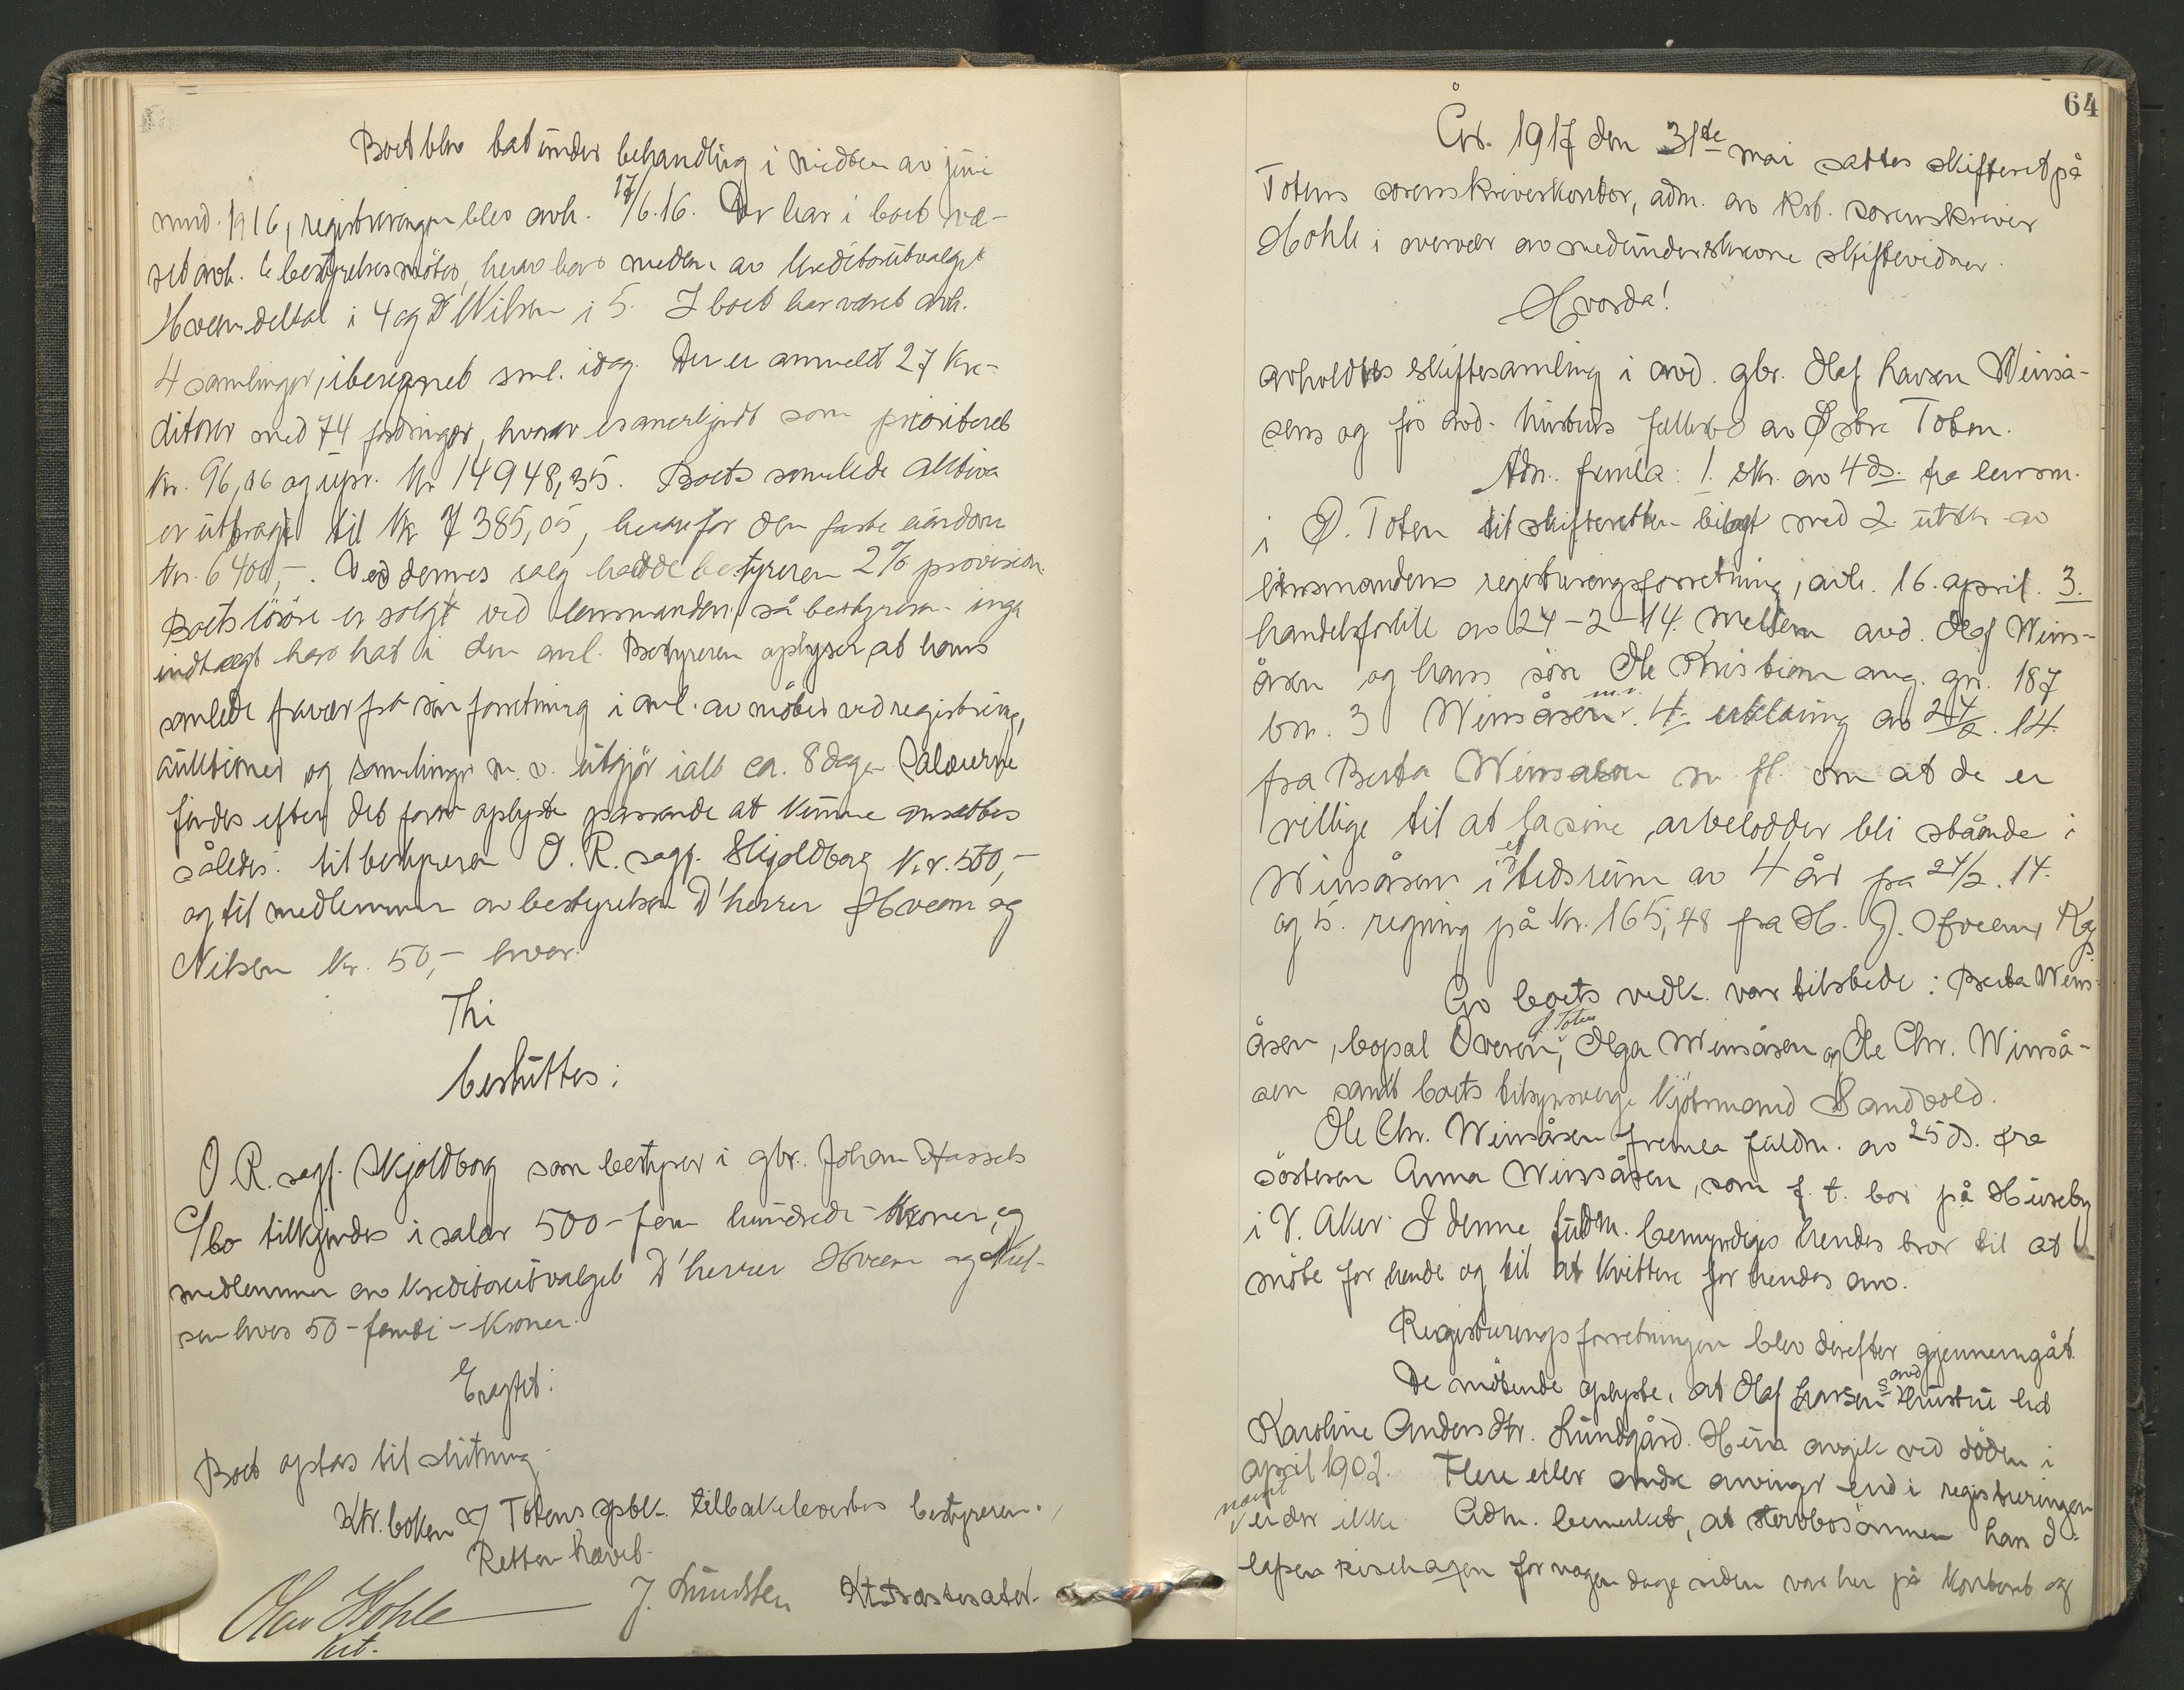 Boet blev tat under behandling i midten av juni
mnd. 1916, registreringen blev avh. 17/6.16. Der har i boet væ-
ret avh. 6 bestyrelsesmöter, hvorav har medlem av kreditorutvalget
Hveem deltat i 4 og D' Nilsen i 5. I boet har været avh.
4 samlinger, iberegnet sml. idag. Der er anmeldt 27 kre-
ditorer med 74 fordringer, hvorav er anerkjendt som prioriteret
kr. 96,06 og upr. kr 14948,35. Boets samlede aktiva
er utbragt til kr 7385,05, herav for den faste eiendom
kr. 6400,-. Ved dennes salg hadde bestyreren 2% provision.
Boets lösöre er solgt ved lensmanden, så bestyreren inge
indtægt har hat i den anl. Bestyreren oplyser, at hans
samlede fravær fra sin forretning i anl. av möter ved registrering,
auktioner og samlinger m. v. utgjör ialt ca. 8 dage. Salærerne
findes efter det foran oplyste passende at kunne ansættes
således: til bestyreren O. R. sagf. Skjoldborg kr. 500,-
og til medlemmer av bestyrelsen D'herrer Hveem og
Nilsen kr. 50,- hver.
Thi
besluttes:
O. R. sagf. Skjoldborg som bestyrer i gbr. Johan Hassels
c/bo tilkjendes i salær 500 - fem hundrede - kroner, og
medlemmer av kreditorutvalget D'herrer Hveem og Niel-
sen hver 50 - femti - kroner.
Eragtet:
Boet optas til slutning.
Ktr. boken Totens spbk. tilbakeleveres bestyreren.
Retten hævet.
Olav Hohle
kst.
J. Lundsten
64
År. 1917 den 31te mai sattes skifteret på
Totens sorenskriverkontor, adm. av kst. sorenskriver
Hohle i overvær av medunderskrevne skiftevidner.
Hvorda!
avholdtes skiftesamling i avd. gbr. Olaf Larsen Winså-
sens og før avd. hustrus fællesbo av Østre Toten.
Adm. fremla: 1. skr. av 4 ds. fra lensm.
i Ø. Toten til skifteretten bilagt med 2. utskr. av
lensmandens registreringsforretning, avh. 16. april. 3.
handelsforlik av 24-2-14 mellem avd. Olaf Wins-
åsen og hans sön Ole Kristian ang. gn. 187
bn. 3 Winsåsen m.v. 4. erklæring av 24/2.14.
fra Berta Winsåsen m. fl. om at de er
villige til at la sine arvelodder bli stående i
Winsåsen i et tidsrum av 4 år fra 24/2.14.
og 5. regning på kr. 165,48 fra H. J. Hveem, Kap
Av boets vedk. var tilstede: Berta Wins-
åsen, bopæl Överen, Ø. Toten, Olga Winsåsen og Ole Chr. Winså-
sen samt boets tilsynsverge kjöbmand Sandvold.
Ole Chr. Winsåsen fremla fuldm. av 25 ds. fra
sösteren Anna Winsåsen, som f. t. bor på Huseby
i V. Aker. I denne fuldm. bemyndiges hendes bror til at
möte for hende og til at kvittere for hendes arv.
Registreringsforretningen blev derefter gjennemgåt.
De mötende oplyste, at Olaf Larsens avd. hustru hed
Karoline Andersdtr. Lundgård. Hun avgik ved döden i
april 1902. Flere eller andre arvinger end i registreringen
nævnt er der ikke. Adm. bemerket, at stervbosönnen Lars O-
lafsen for nogen dage siden var her på kontoret og